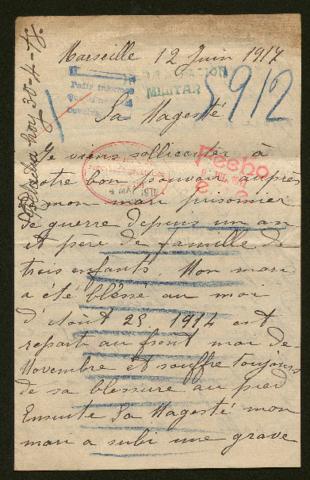 Marseille 12 Juin 1917
MILITAR
5912
Sa Magesté
Je viens sollicuter à
votre bon pouvoir auprès
mon mari prisonier
de guerre depuis un an
et père de famille de
trois enfants. Mon mari
a été bléssé au moi
d'Aout 25 1914 est
reparti au front moi de
Novembre et souffre toujours
de sa blessure au pied
Ensuite Sa Magesté mon
mari a subi une grave
hoy 30-4-18